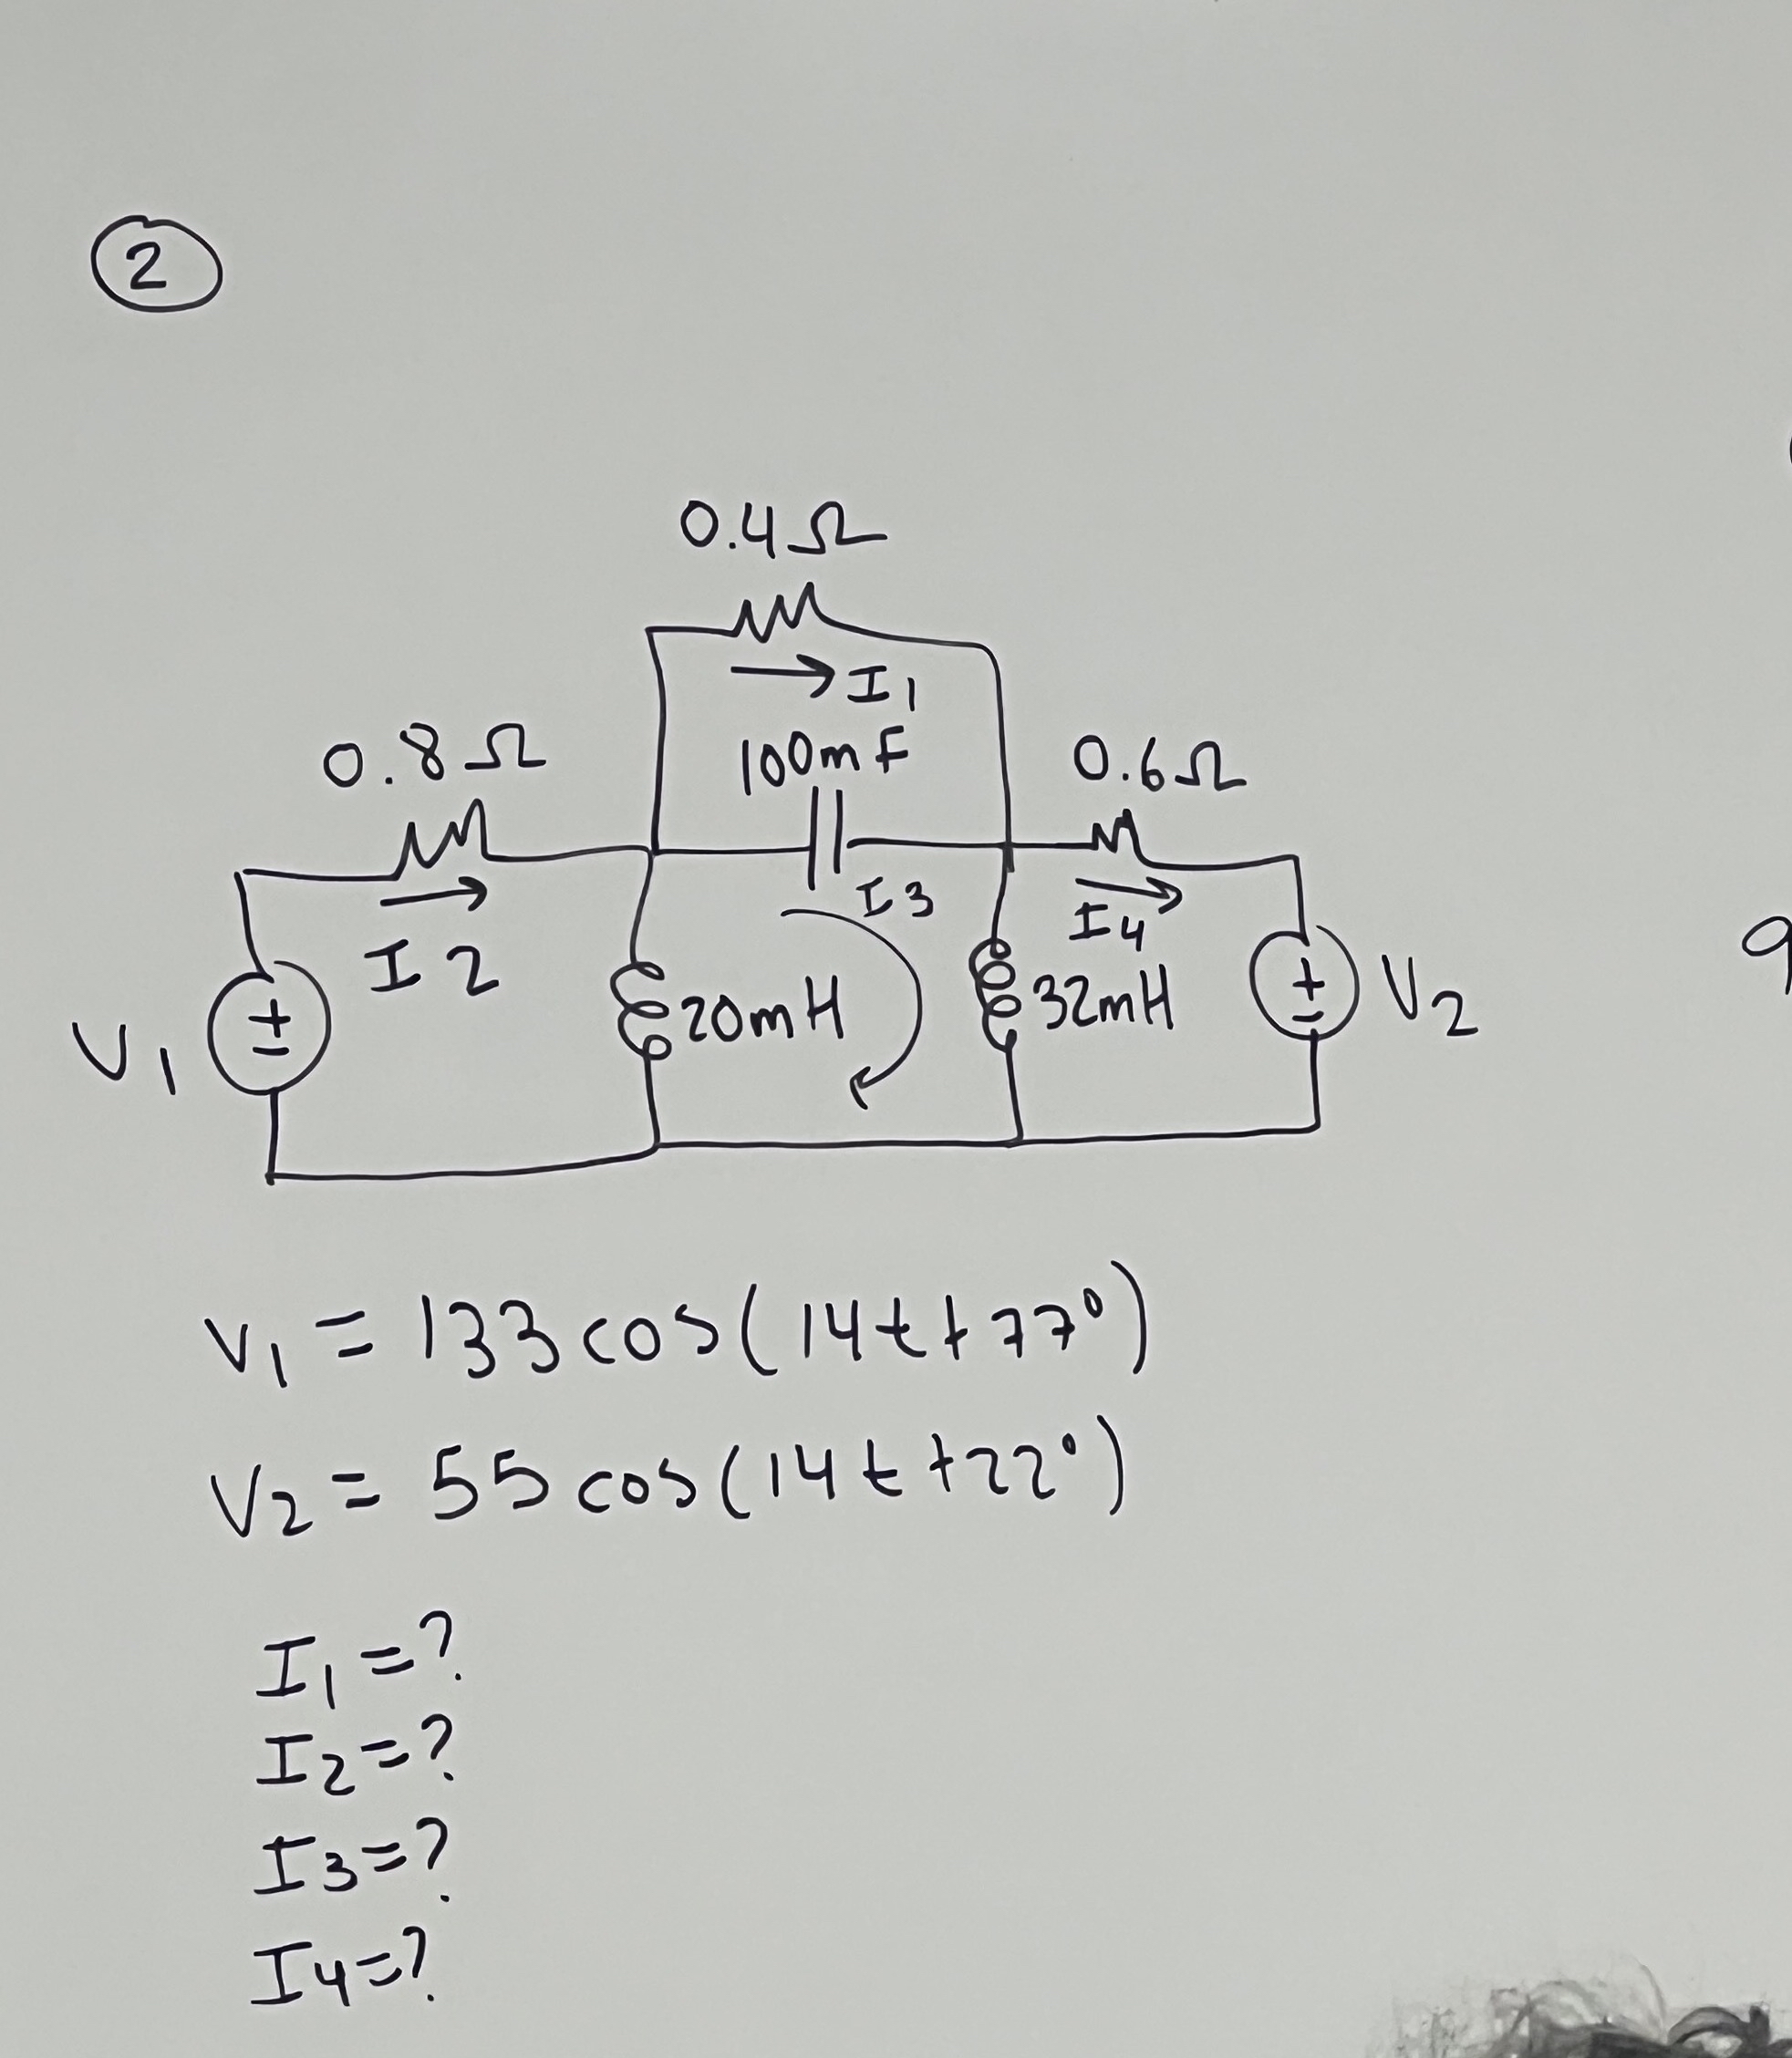 2
0.4Ω
I1
100mF
0.8Ω
0.6Ω
I3
I4
I2
20mH
32mH
V1
V2
+
-
+
-
V1 = 133cos(14t+77°)
V2 = 55cos(14t+22°)
I1=?
I2=?
I3=?
I4=?
9